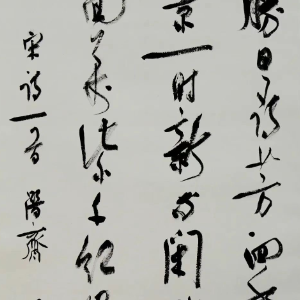 勝日尋芳泗
景一时新等閒
面萬紫千紅
宋詩一首 齋